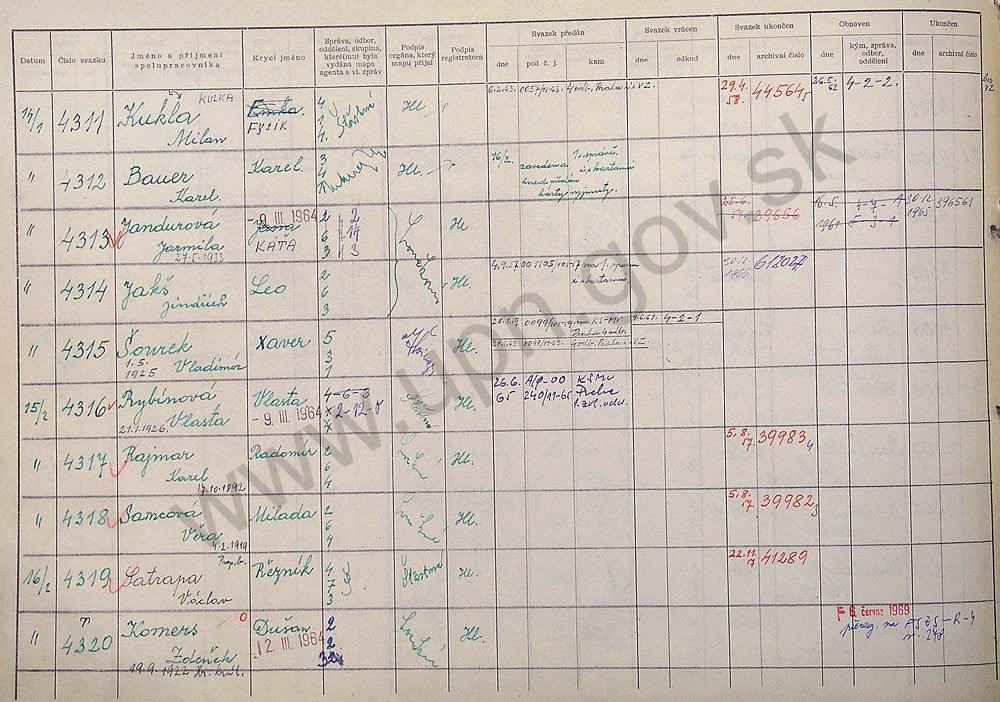 Datum
Číslo svazku
Jméno a příjmení
spolupracovníka
Krycí jméno
Správa, odbor,
oddělení, skupina,
které(mu) byla
vydána mapa
agenta a vl. zpráv
Podpis
orgána, který
mapu přijal
Podpis
registratora
Svazek předán
dne
pod č. j.
kam
Svazek vrácen
dne
odkud
Svazek ukončen
dne
archivní číslo
Obnoven
dne
kým, správa,
odbor,
oddělení
Ukončen
dne
archivní číslo
14/1 4311 Kukla KULKA
Milan
FYZIK
4
Hl.
6.2.63. 0057/11-63. 4odb. Praha
29.4.
58. 44564
26.5.
62 4-2-2.
" 4312 Bauer
Karel
Karel.
3
4
Hl.
16/2.
zavedena
1. správě.
i s kartami
karty vyjmuty.
" 4313 Jandurová
Jarmila
27.5.1933
- 9. III. 1964
KÁŤA
2
6
3
2
14
3
Hl.
25.6.
57. 39656
16.5.
1961
4-7-1
5-3-1
30.12.
1965
396561
" 4314 Jakš
Jindřich
Leo
2
6
3
Hl.
4.9.-
na 1. správu
i s kartami
30.12.
1966
612027
" 4315 Šourek
1.5.
1925 Vladimír
Xaver
5
3
1
Hl.
28.1.19 0099/ na KS-MV
Praha 4odb.
28.1.63 4odb. Praha
9.6.61. 4-2-1
15/2 4316 Rybínová
21.1.1926. Vlasta
Vlasta
- 9. III. 1964
4-6-3
2-12-
4
Hl.
26.6.
65
A/p-00
240/11-65
KSMV
Praha
1.zvl.odd.
" 4317 Rajmar
Karel
17.10.1892
Radomír
2
6
4
Hl.
5.8.
57. 39983
4
" 4318 Samcová
Věra
4.2.1919
Milada
2
6
4
Hl.
5.8.
57. 39982
3
16/2 4319 Satrapa
Václav
Řezník
4
7
3
Šťastný
Hl.
22.11.
57 41289
" T
4320
Komers
Zdeněk
19.9.1922
Dušan
12. III. 1964
2
2
Hl.
6. června 1969
přereg. na
www.upn.gov.sk